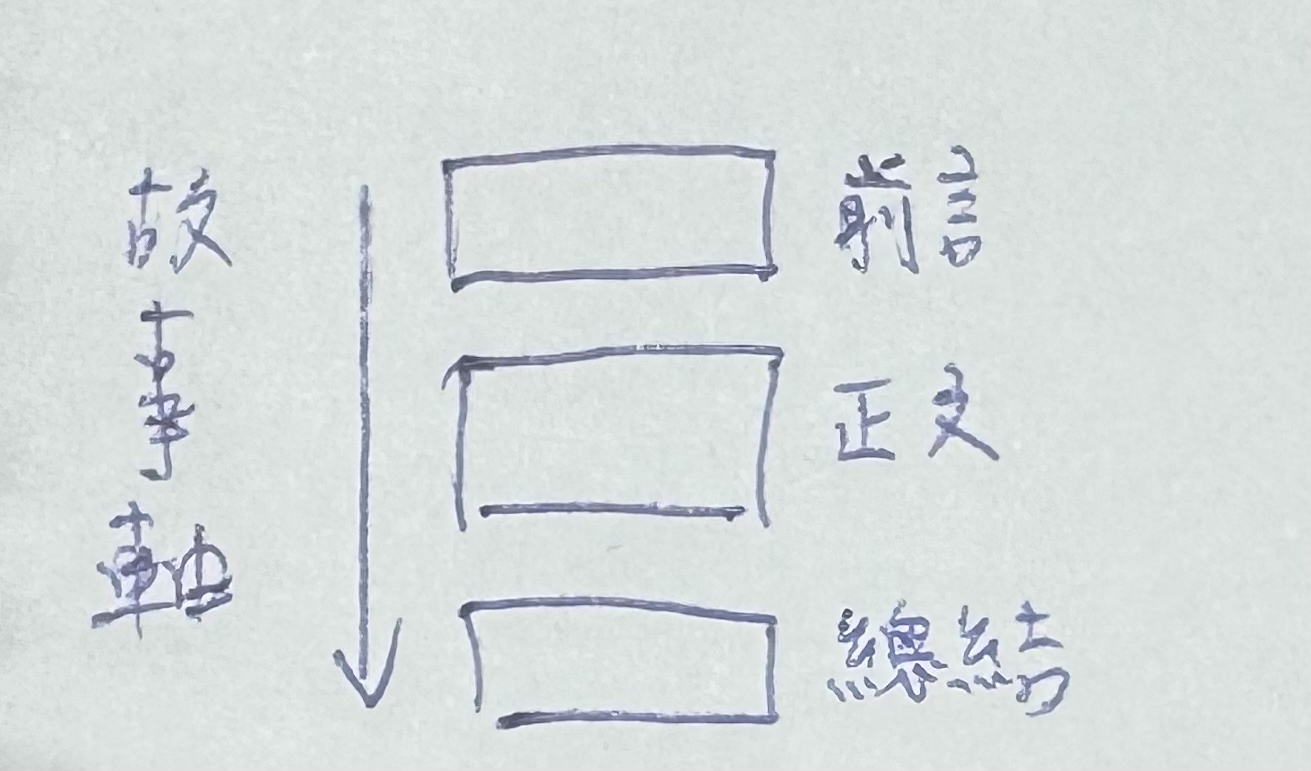 故事軸
前言
正文
總結